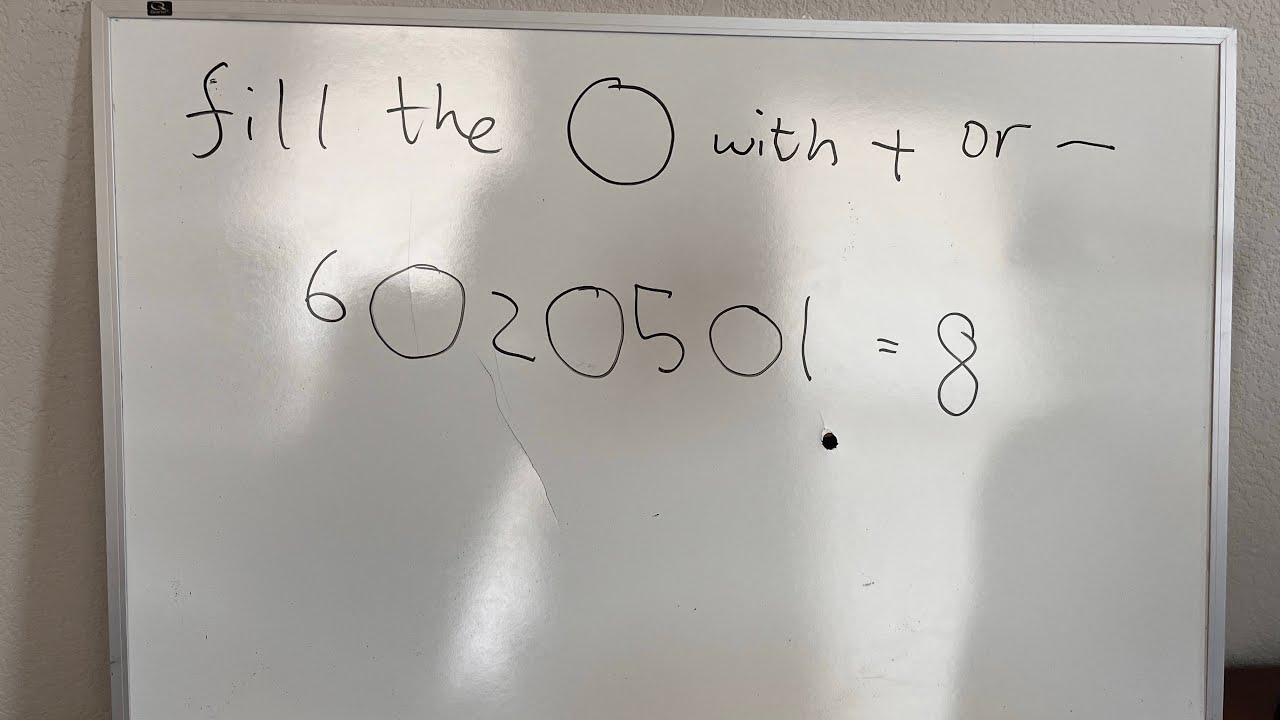 fill the ◯ with + or -
6 ◯ 2 ◯ 5 ◯ 1 = 8